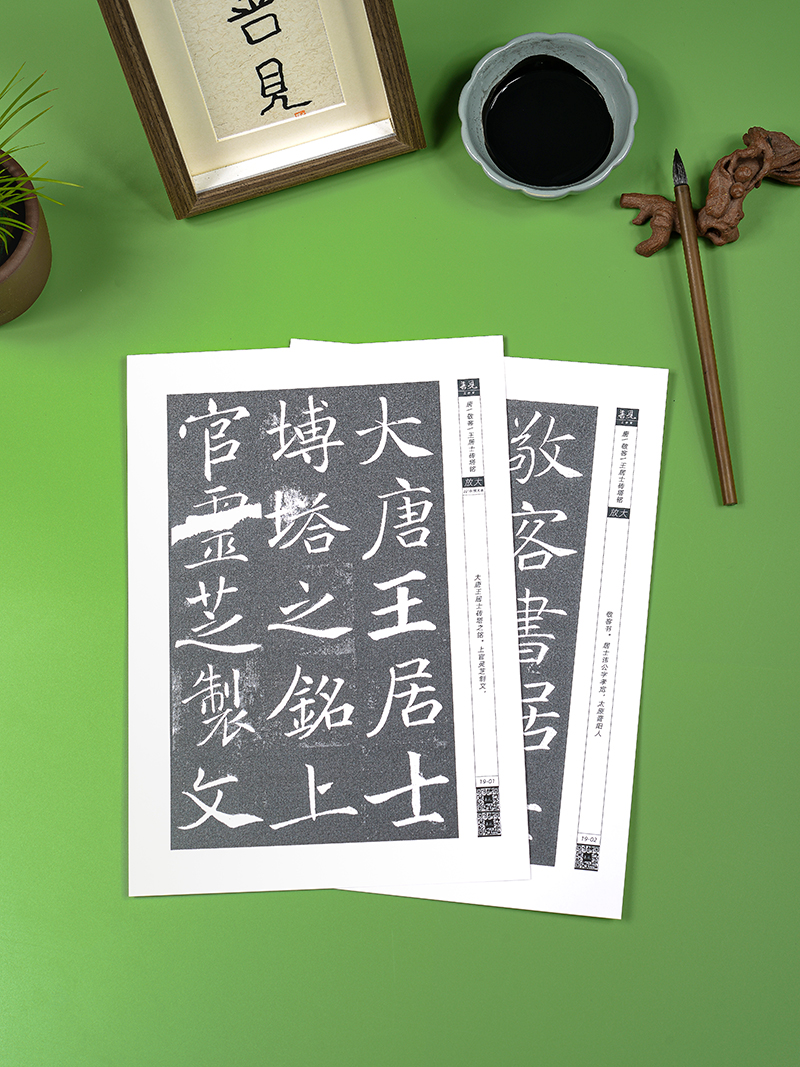 善見
大唐王居士
塼塔之銘上
官靈芝製文
善見
唐｜敬客｜王居士砖塔铭
放大
大唐王居士砖塔之铭。上官灵芝制文。
19-01
敬客書居
善見
唐｜敬客｜王居士砖塔铭
放大
敬客书。居士讳公字孝宽，太原晋阳人
19-02